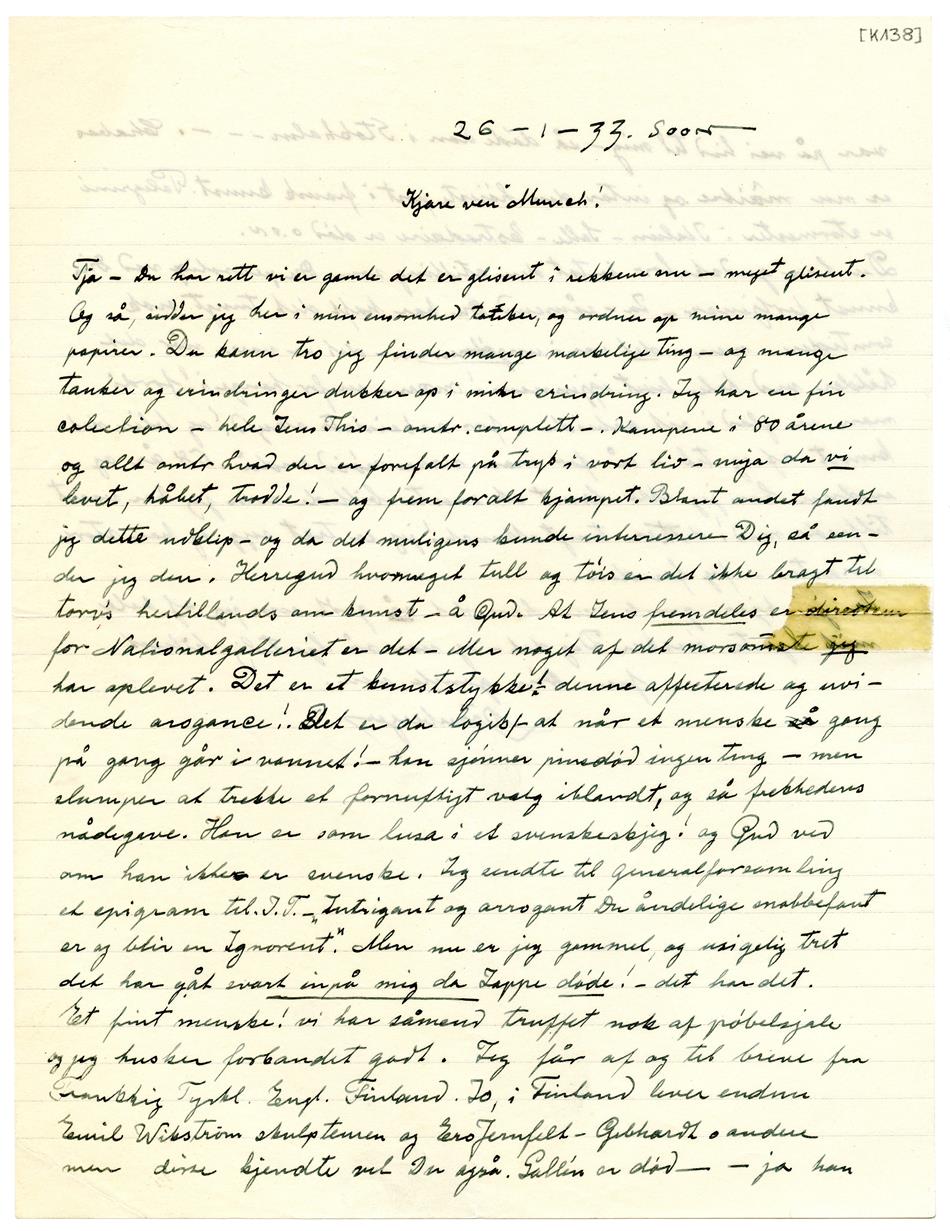 [K138]
26 – 1 – 33. Soon
Kjære ven Munch!
Tja – Du har rett vi er gamle det er glisent i rekkene nu – meget glisent.
Og så, sidder jeg her i min ensomhed tænker, og ordner op mine mange
papirer. Du kann tro jeg finder mange markelige ting – og mange
tanker og erindringer dukker op i min erindring. Jeg har en fin
colection – hele Jens This – omtr. complett –. Kampene i 80 årene
og allt omtr hvad der er forefalt på tryk i vort liv – mija da vi
levet, håbet, trodde! – og frem foralt kjæmpet. Blant andet fandt
jeg dette udklip – og da det muligens kunde interressere Dig, så sen-
der jeg den. Herregud hvormeget tull og tøis er det ikke bragt til
torvs hertillands om kunst – å Gud. At Jens fremdeles er directeur
for Nationalgalleriet er det – eller noget af det morsomste jeg
har oplevet. Det er et kunststykke! denne affecterede og uvi-
dende arogance!. Det er da logisk at når et menske så gang
på gang går i vannet! – han sjönner pinedöd ingen ting – men
slumper at trekke et fornuftigt valg iblandt, og så frekhedens
nådegave. Han er som lusa i et svenskeskjeg! og Gud ved
om han ikke er svenske. Jeg sendte til generalforsamling
et epigram til J.T. – „Intrigant og arrogant Du åndelige snobbefant
er og blir en Ignorent". Men nu er jeg gammel, og usigelig tret
det har gåt svart inpå mig da Jappe döde! – det har det.
Et fint menske! vi har såmend truffet nok af pöbelsjale
og jeg husker forbandet godt. Jeg får af og til breve fra
Frankrig Tyskl. Engl. Finland. Jo, i Finland lever endnu
Emil Wikström skulptøren og Ero Jernfelt – Gebhardt o andere
men disse kjendte vel Du også. Gallén er död — – ja han